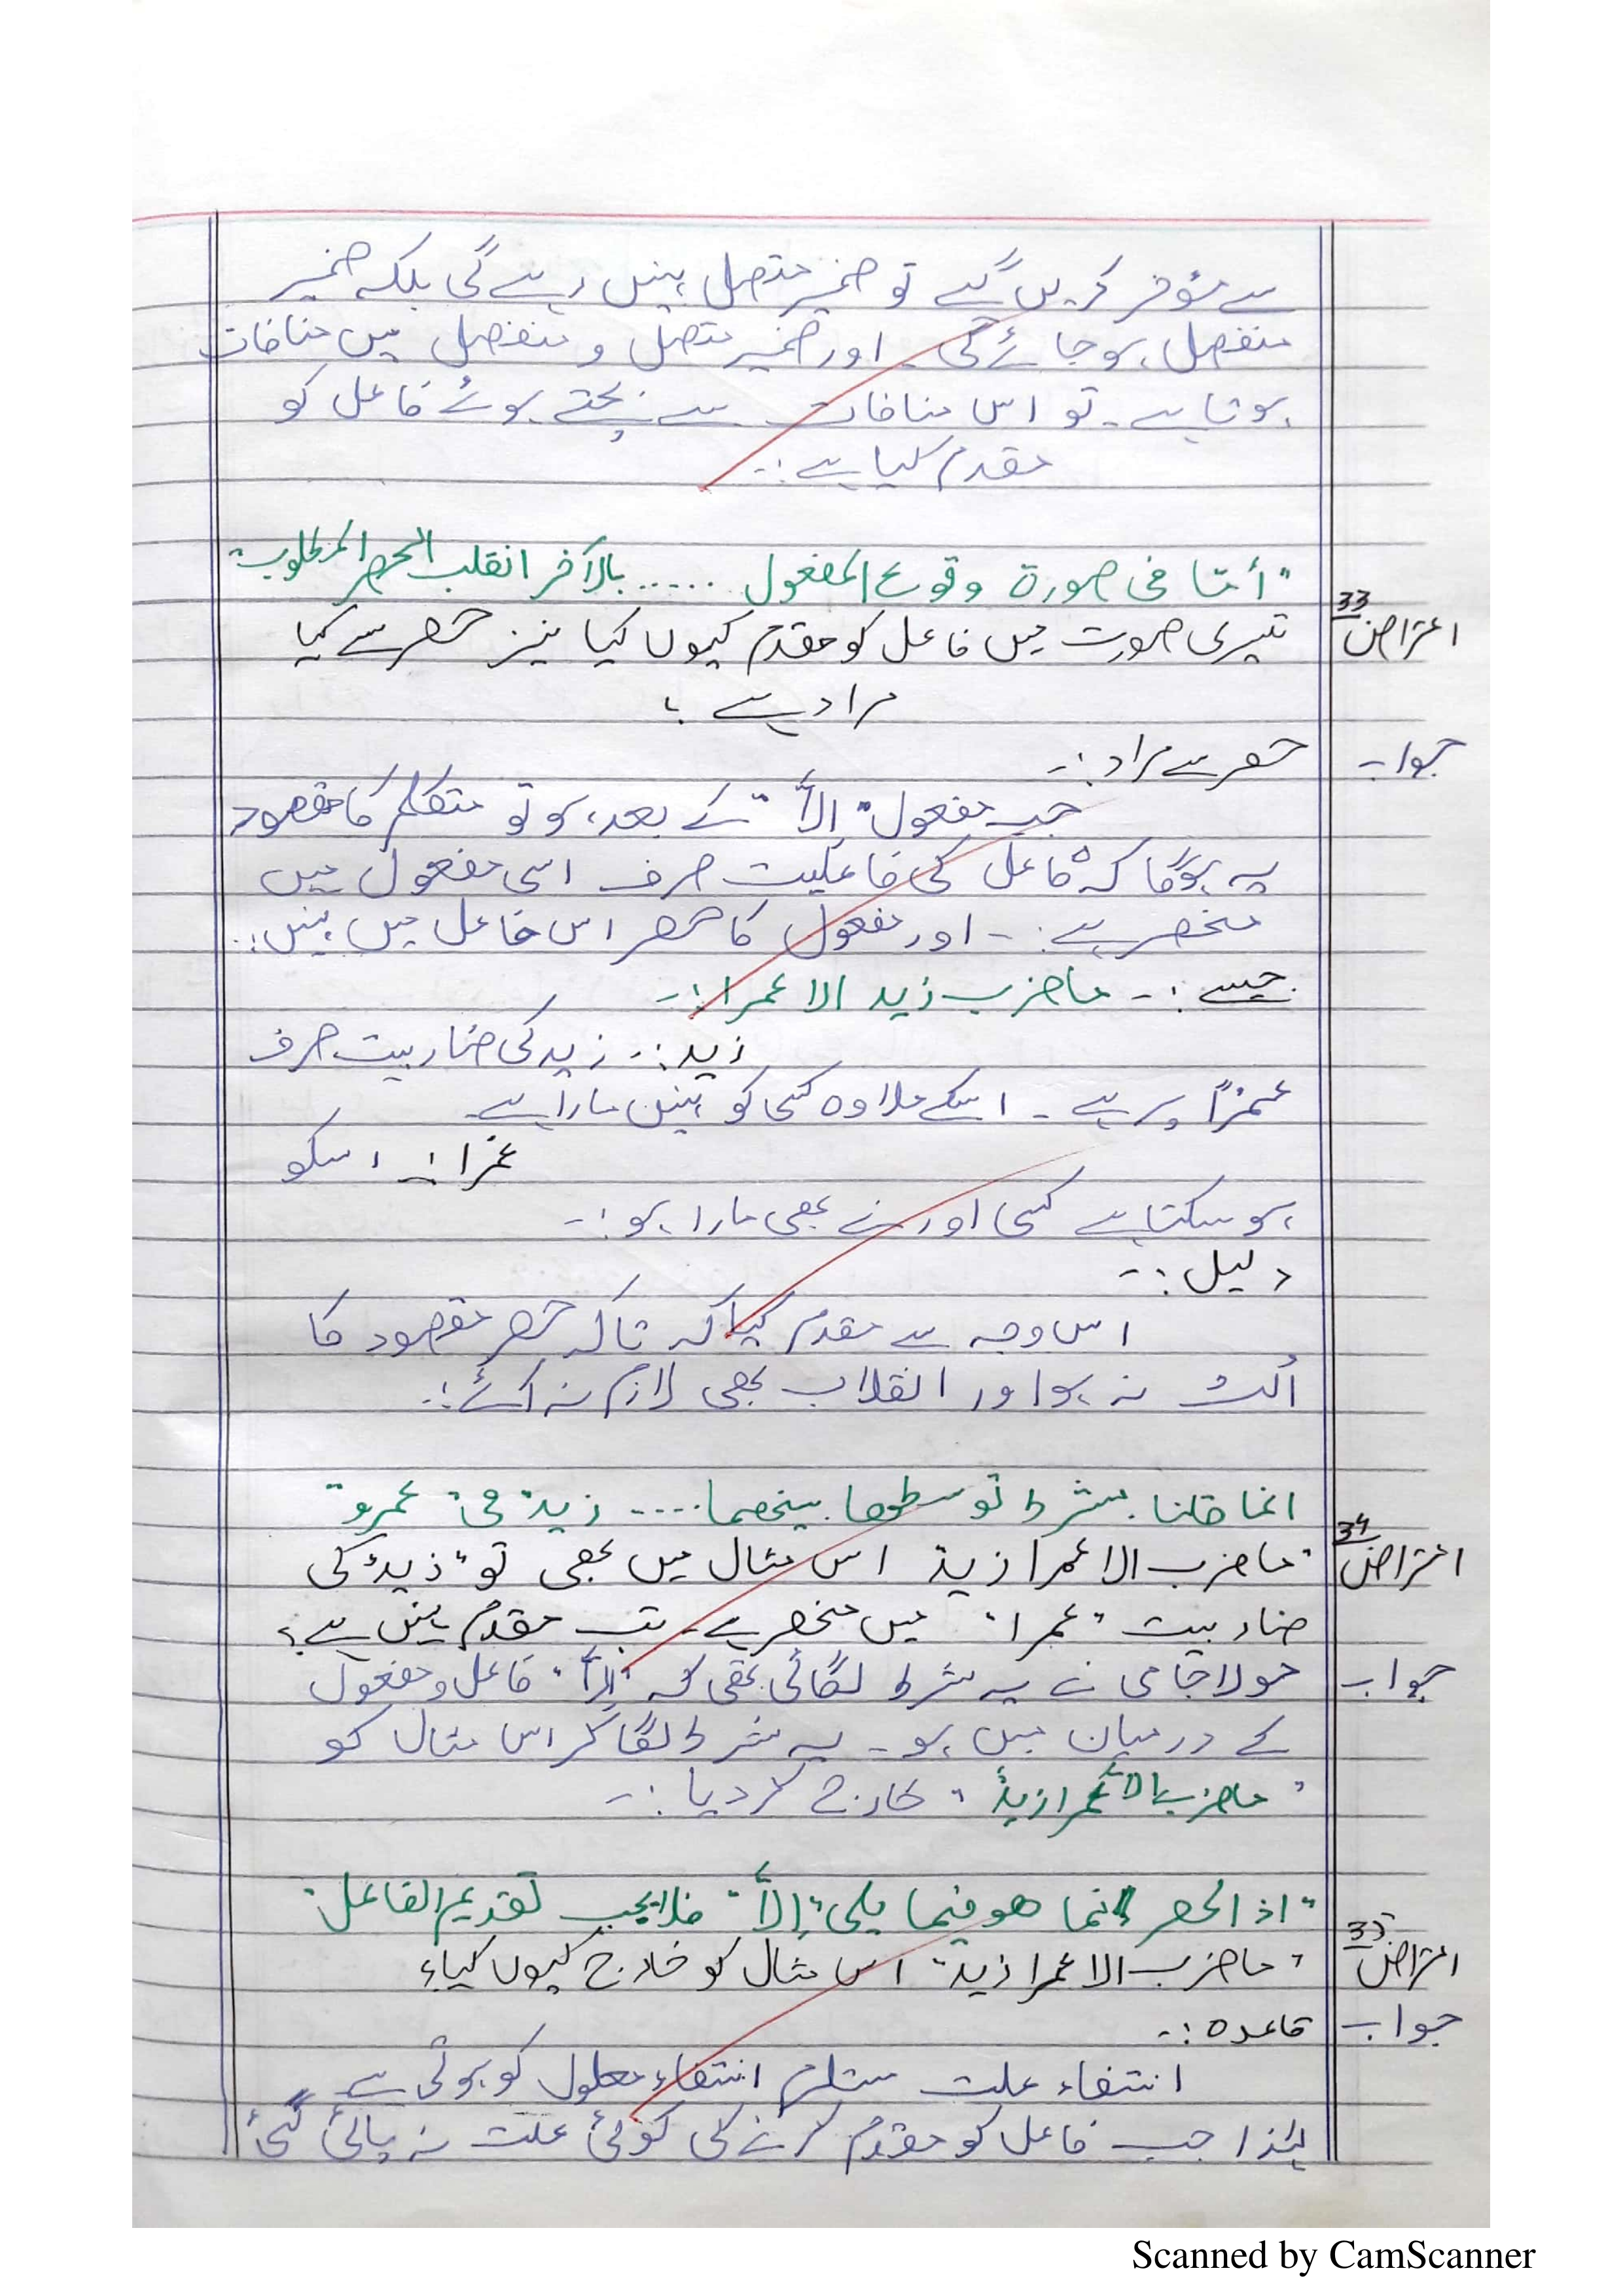 سے مؤخر کریں گے تو ضمیر متصل نہیں رہے گی بلکہ ضمیر
منفصل ہو جائے گی۔ اور ضمیر متصل و منفصل میں منافات
ہوتا ہے۔ تو اس منافات سے بچتے ہوئے فاعل کو
مقدم کیا ہے :۔
"أمّا فی صورة وقوع المفعول ..... بالآخر انقلب الحصر المطلوب"
اعتراض 33 تیسری صورت میں فاعل کو مقدم کیوں کیا نیز حصر سے کیا
مراد ہے ؟
جواب حصر سے مراد :۔
جب مفعول "إلاَّ" کے بعد ہو تو متکلم کا مقصود
یہ ہوگا کہ فاعل کی فاعلیت صرف اسی مفعول میں
منحصر ہے :۔ اور مفعول کا حصر اس فاعل میں نہیں :۔
جیسے :۔ ماضرب زید الا عمرا :۔
زید :۔ زید کی ضاربیت صرف
عمرًا پر ہے ۔ اسکے علاوہ کسی کو نہیں مارا ہے۔
عمرا :۔ اسکو
ہو سکتا ہے کسی اور نے بھی مارا ہو :۔
دلیل :۔
اس وجہ سے مقدم کیا کہ تاکہ حصر مقصود کا
اُلٹ نہ ہو اور انقلاب بھی لازم نہ آئے :۔
انما قلنا بشرط توسطھا بینھما .... زید" فی "عمرو"
اعتراض 34 "ماضرب الا عمرا زید" اس مثال میں بھی تو "زید" کی
ضاربیت "عمرا" میں منحصر ہے۔ تب مقدم نہیں ہے ؟
جواب مولا جامی نے یہ شرط لگائی تھی کہ "إلاَّ" فاعل و مفعول
کے درمیان میں ہو ۔ یہ شرط لگا کر اس مثال کو
"ماضرب الا عمرا زیدٌ" خارج کر دیا :۔
"اذ الحصر انما ھو فیما یلی "إلاَّ" فلا یجب تقدیم الفاعل"
اعتراض 35 "ماضرب الا عمرا زید" اس مثال کو خارج کیوں کیا؟
جواب قاعدہ :۔
انتفاء علت مستلزم انتفاء معلول کو ہوتی ہے
لہٰذا جب فاعل کو مقدم کرنے کی کوئی علت نہ پائی گئی
Scanned by CamScanner